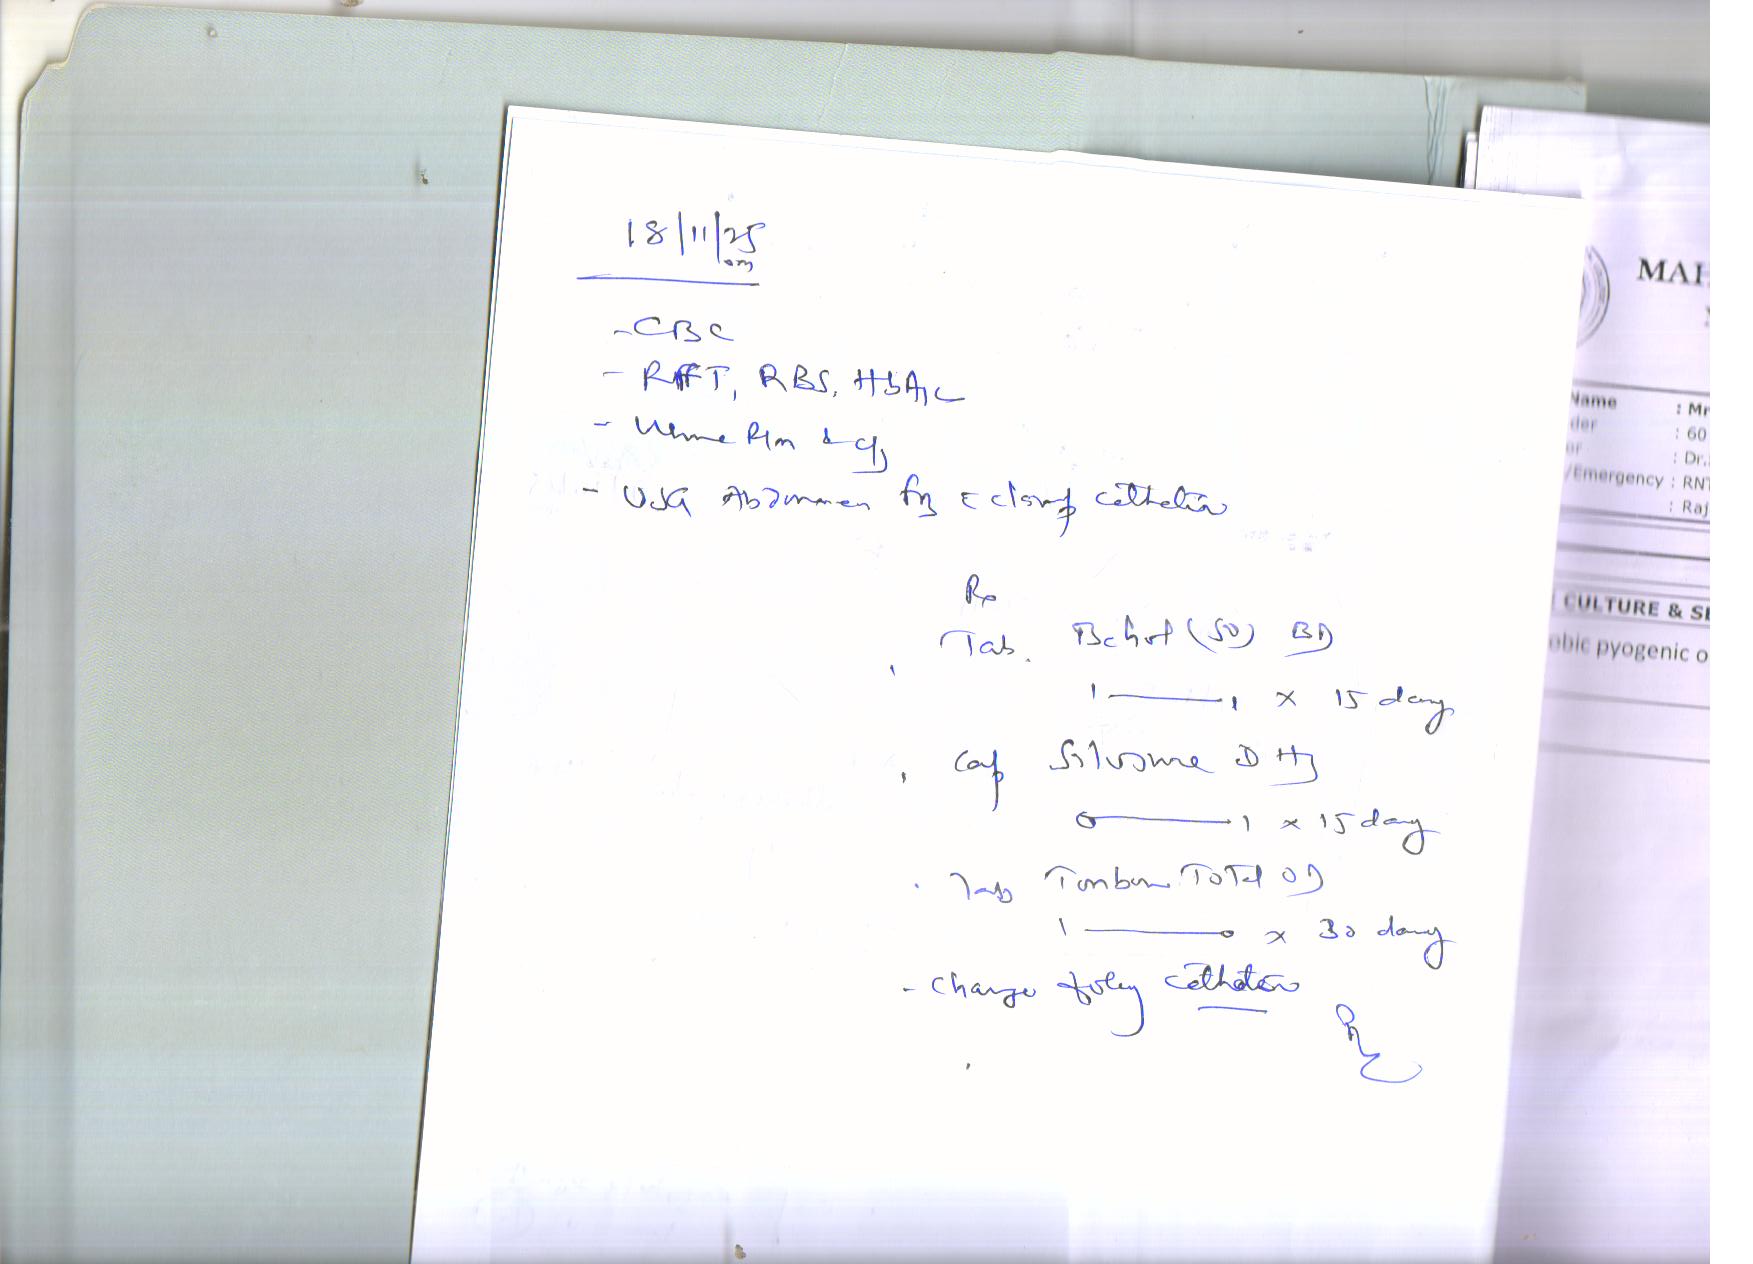 18/11/25
- CBC
- RFT, RBS, HbA1C
- Urine R/m & c/s
- USG Abdomen for c clamp catheter
Rx
Tab. (50) BD
1 —— 1 x 15 days
Cap D
0 —— 1 x 15 days
Tab Total OD
1 —— 0 x 30 days
- Change foley catheter
MAH
Name : Mr
der : 60
or : Dr.
/Emergency : RNT
: Raj
CULTURE & SE
obic pyogenic o